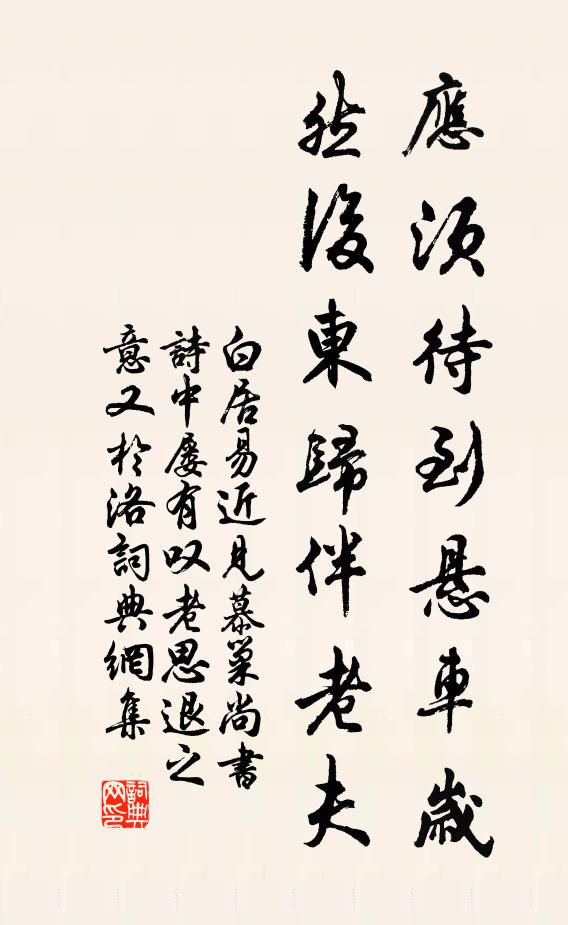 應須待到悬車歲
然後東歸伴老夫
白居易近見慕巢尚書
詩中屡有叹老思退之
意又於洛詞典網集
詞典
网印